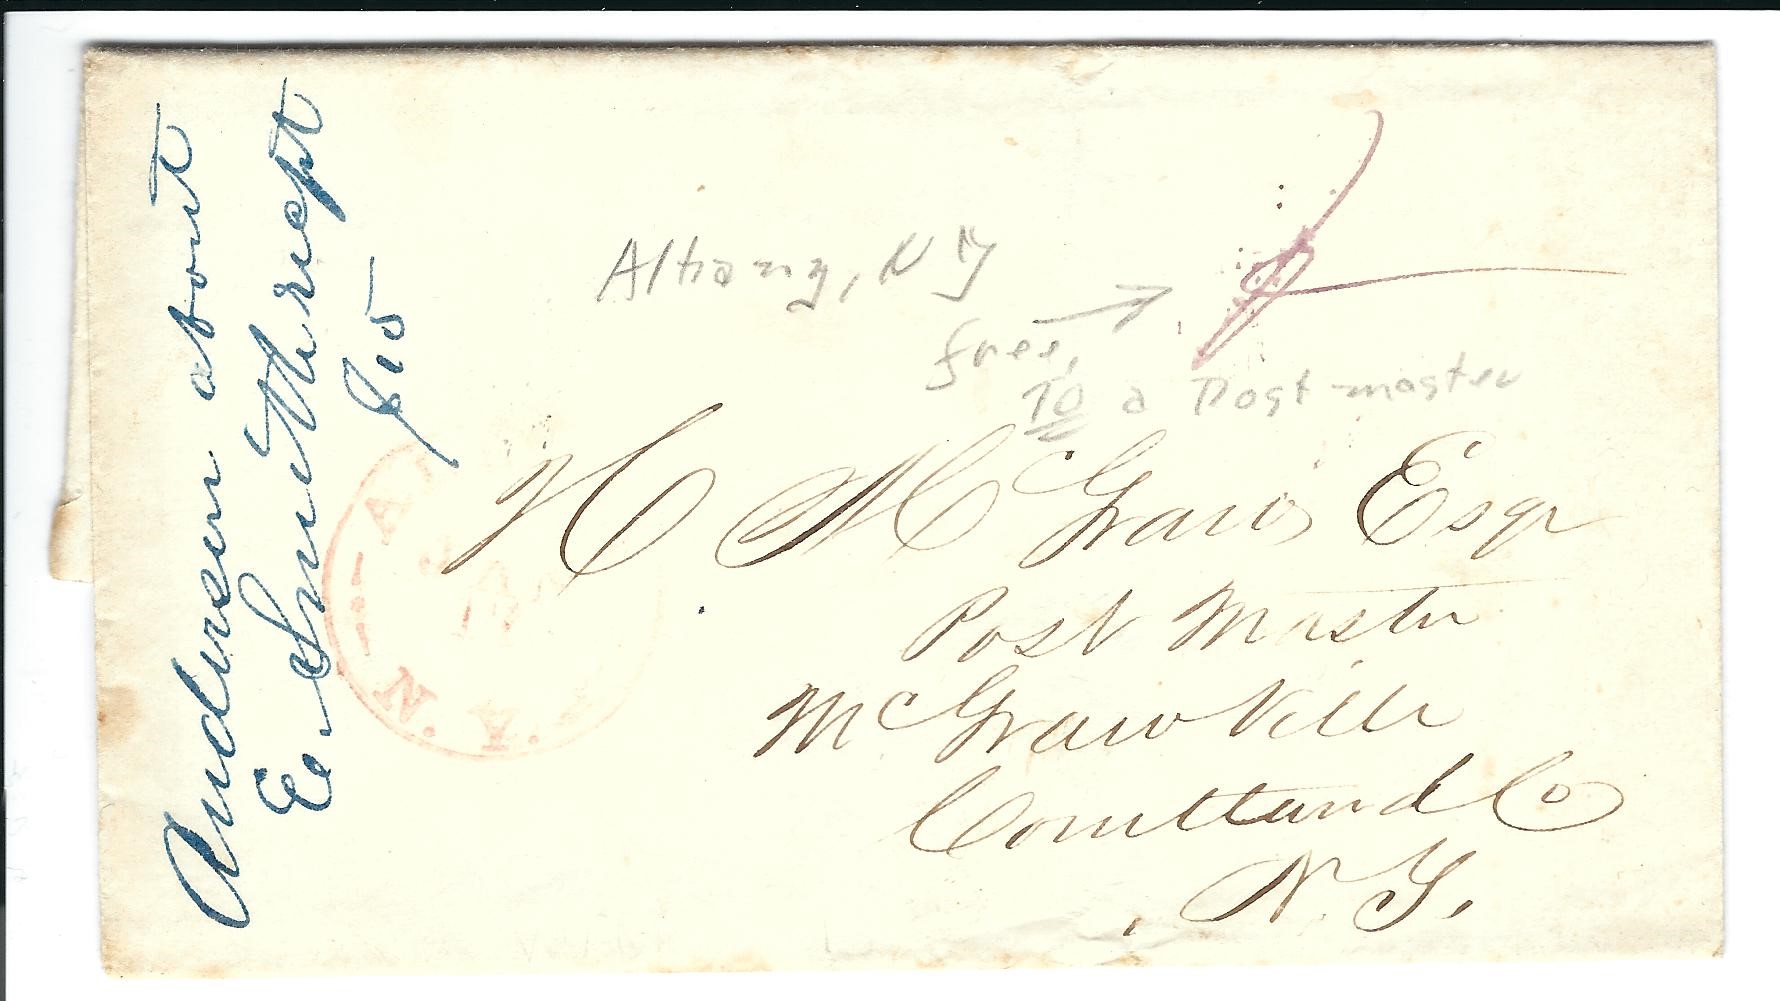 Anderson about
E. Smith riept
$15
Albany, NY
free,
TO a Postmaster
H McGraw Esqr
Post Master
McGrawVille
Courttland Co
N. Y.
A
N. Y.